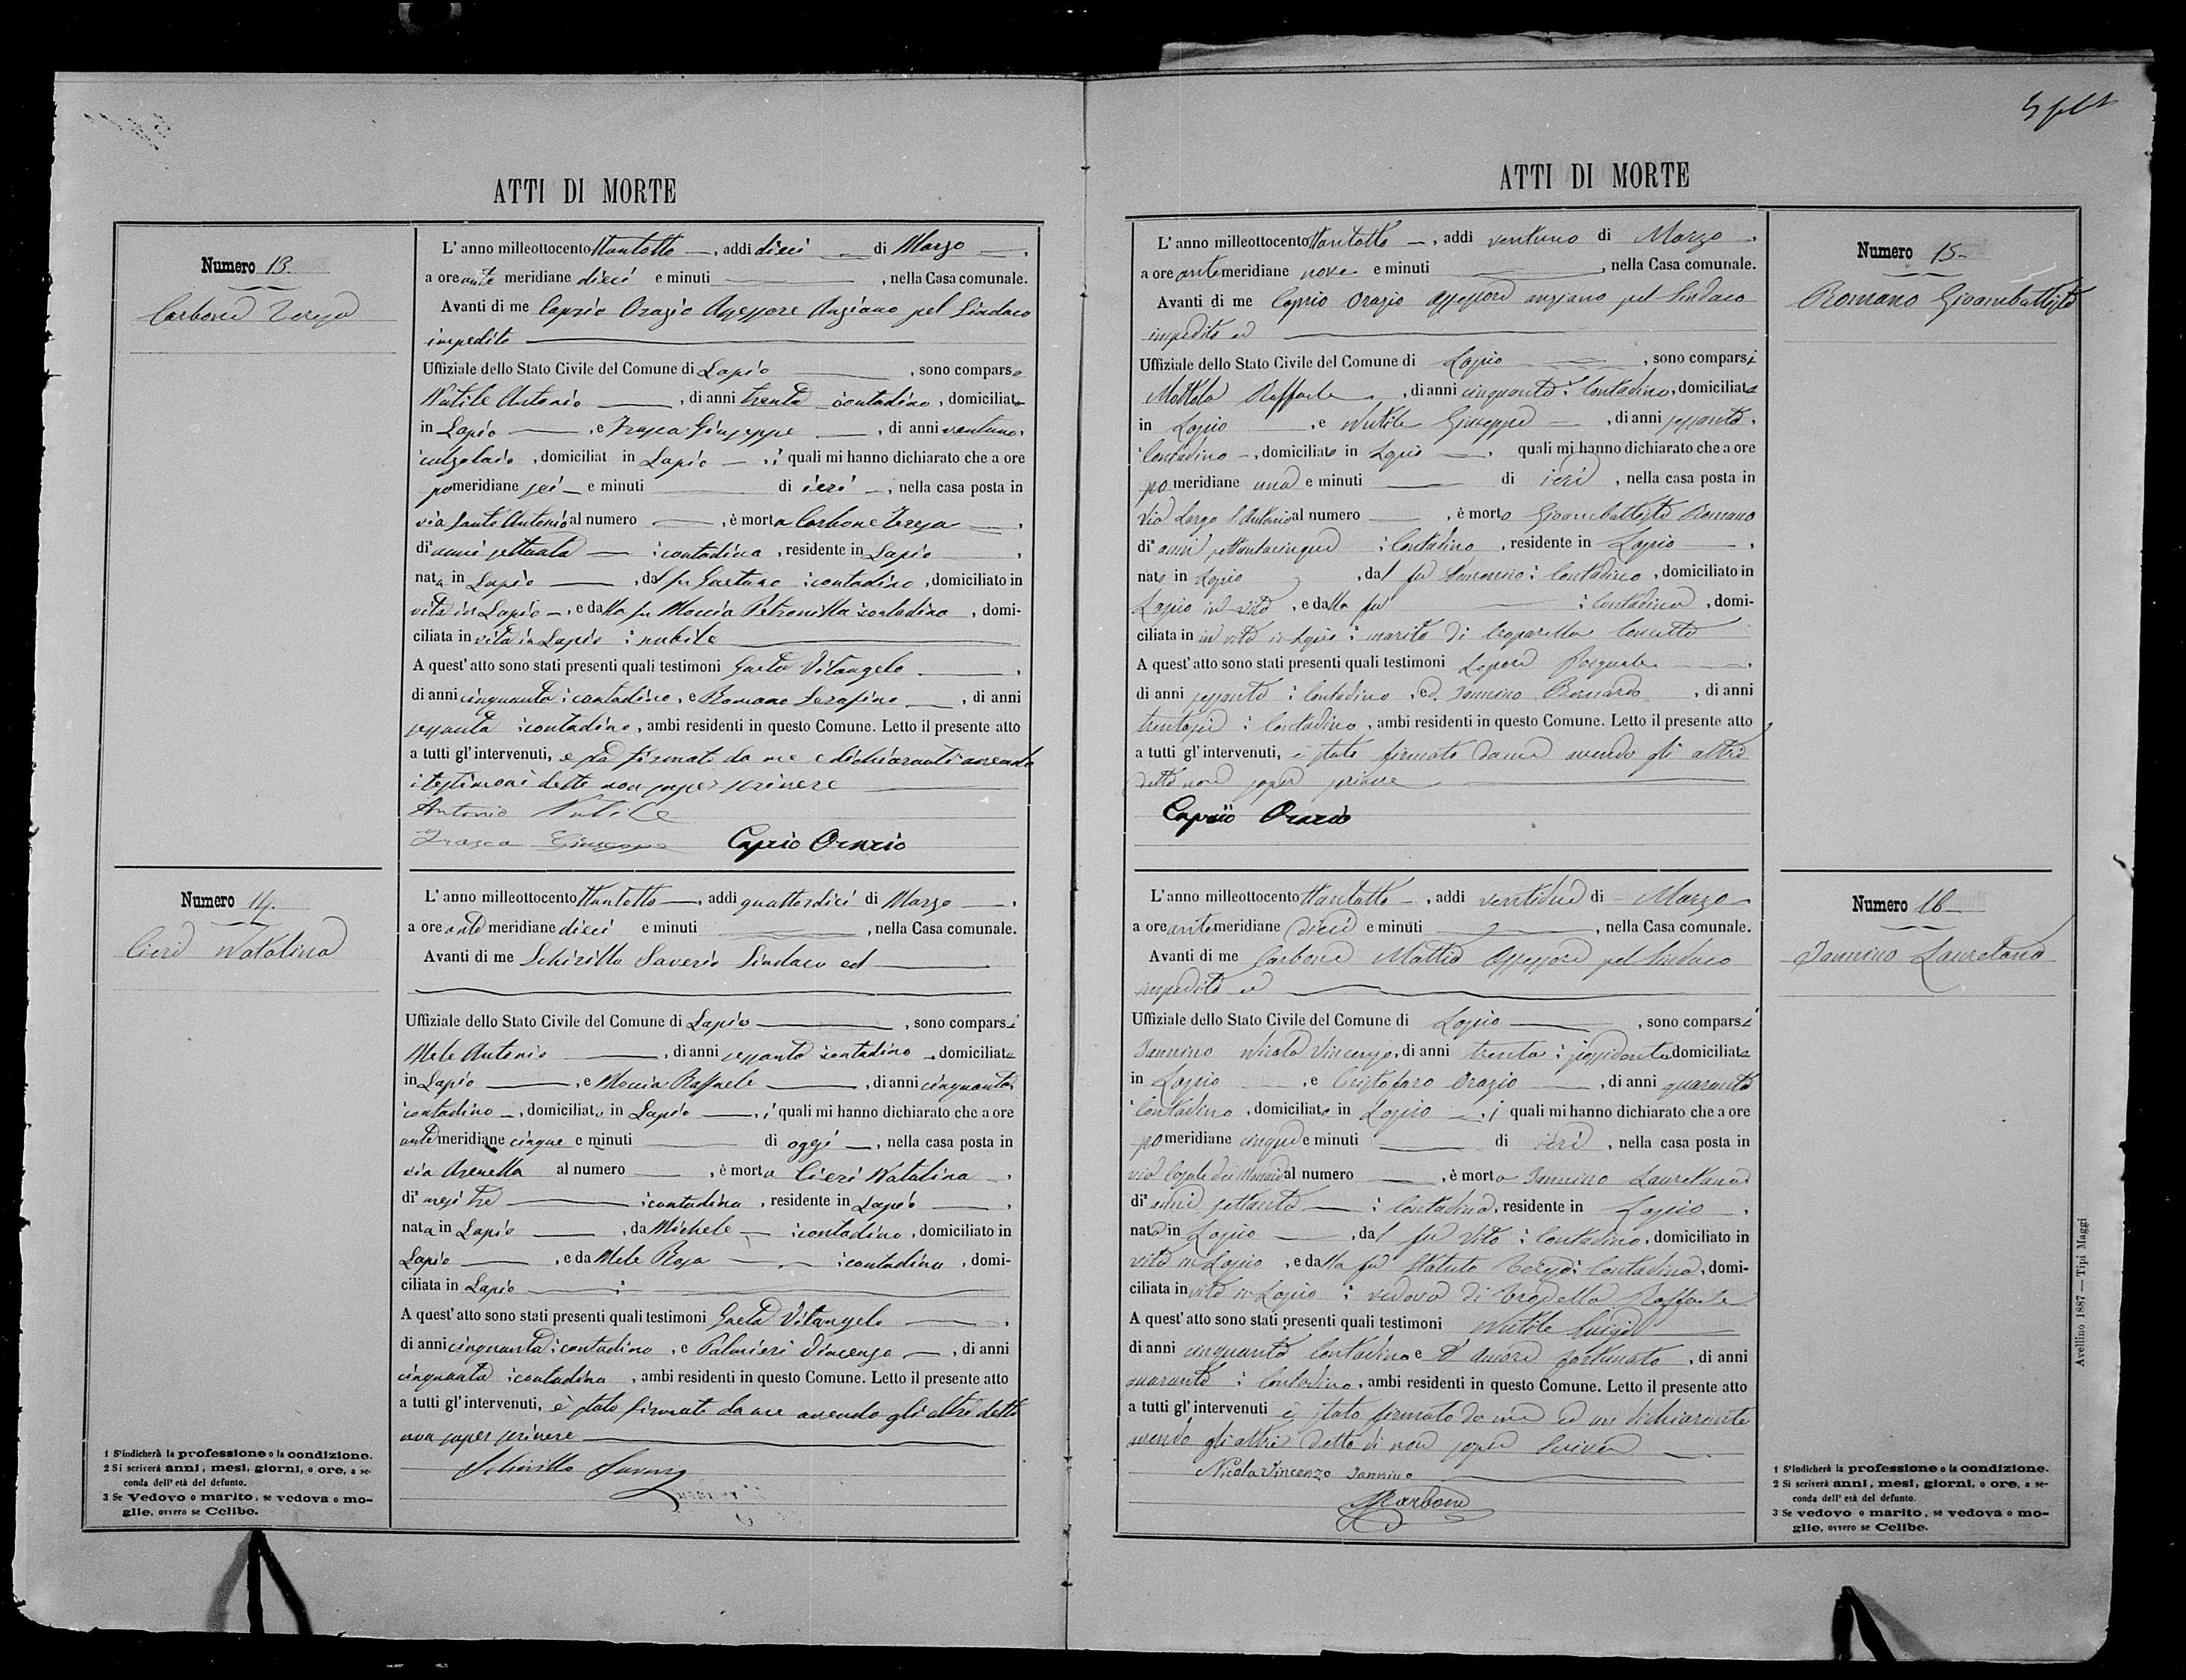 ATTI DI MORTE
Numero 13.
Carbone Teresa
L' anno milleottocento ttantotto —, addi dieci — di Marzo —,
a ore ante meridiane dieci e minuti —, nella Casa comunale.
Avanti di me Caprio Orazio Assessore Anziano pel Sindaco
impedito —
Uffiziale dello Stato Civile del Comune di Lapio —, sono comparsi
Nutile Antonio —, di anni trenta contadino, domiciliato
in Lapio —, e Frasca Giuseppe —, di anni ventuno,
calzolaio, domiciliat in Lapio —, i quali mi hanno dichiarato che a ore
pomeridiane sei — e minuti — di ieri —, nella casa posta in
via Santo Antonio al numero —, è morta Carbone Teresa —,
di² anni settanta — contadina, residente in Lapio —,
nata in Lapio —, dal fu Gaetano contadino, domiciliato in
vita in Lapio —, e dalla fu Moccia Petronilla contadina, domi-
ciliata in vita in Lapio ; nubile —
A quest' atto sono stati presenti quali testimoni Gaeta Vitangelo —,
di anni cinquanta contadino, e Romano Serafino —, di anni
sessanta contadino, ambi residenti in questo Comune. Letto il presente atto
a tutti gl' intervenuti, e sta firmato da me e dichiaranti avendo
i testimoni detto non saper scrivere —
Antonio Nutile
Frasca Giuseppe Caprio Orazio
Numero 14.
Cieri Natalina
L' anno milleottocento ttantotto —, addi quattordici di Marzo —,
a ore ante meridiane dieci e minuti —, nella Casa comunale.
Avanti di me Schirillo Saverio Sindaco ed —
Uffiziale dello Stato Civile del Comune di Lapio —, sono comparsi
Mele Antonio —, di anni sessanta contadino, domiciliato
in Lapio —, e Moccia Raffaele —, di anni cinquanta
contadino —, domiciliato in Lapio —, i quali mi hanno dichiarato che a ore
ante meridiane cinque e minuti — di oggi —, nella casa posta in
via Arenella al numero —, è morta Cieri Natalina —,
di² mesi tre — contadina, residente in Lapio —,
nata in Lapio —, da Michele — contadino, domiciliato in
Lapio —, e da Mele Rosa — contadina, domi-
ciliata in Lapio —
A quest' atto sono stati presenti quali testimoni Gaeta Vitangelo —,
di anni cinquanta contadino, e Palmieri Vincenzo —, di anni
cinquanta contadino, ambi residenti in questo Comune. Letto il presente atto
a tutti gl' intervenuti, è stato firmato da me avendo gli altri detto
non saper scrivere —
Schirillo Saverio
1 S'indicherà la professione o la condizione.
2 Si scriverà anni, mesi, giorni, o ore, a se-
conda dell' età del defunto.
3 Se Vedovo o marito, se vedova o mo-
glie, ovvero se Celibe.
ATTI DI MORTE
Numero 15
Romano Giovambattista
L' anno milleottocento ttantotto —, addi ventuno di Marzo,
a ore ante meridiane nove e minuti —, nella Casa comunale.
Avanti di me Caprio Orazio Assessore anziano pel Sindaco
impedito ed —
Uffiziale dello Stato Civile del Comune di Lapio —, sono comparsi
Mottola Raffaele, di anni cinquanta contadino, domiciliato
in Lapio —, e Nutile Giuseppe —, di anni sessanta,
contadino —, domiciliato in Lapio —, quali mi hanno dichiarato che a ore
pomeridiane una e minuti — di ieri, nella casa posta in
via Largo S. Antonio al numero —, è morto Giovambattista Romano
di² anni settantacinque contadino, residente in Lapio —,
nato in Lapio, dal fu contadino, domiciliato in
Lapio in vita, e dalla fu — contadina, domi-
ciliata in in vita in Lapio ; marito di Concetta
A quest' atto sono stati presenti quali testimoni Lepore Pasquale —,
di anni sessanta contadino, ed Iannino Bernardo, di anni
trentasei contadino, ambi residenti in questo Comune. Letto il presente atto
a tutti gl' intervenuti, è stato firmato da me avendo gli altri
detto non saper scrivere —
Caprio Orazio
Numero 16
Iannino Lauretana
L' anno milleottocento ttantotto —, addi ventidue di Marzo
a ore ante meridiane dieci e minuti —, nella Casa comunale.
Avanti di me Carbone Mattia Assessore pel Sindaco
impedito ed —
Uffiziale dello Stato Civile del Comune di Lapio —, sono comparsi
Iannino Nicola Vincenzo, di anni trenta possidente domiciliato
in Lapio —, e Cristofaro Orazio —, di anni quaranta
contadino, domiciliato in Lapio —, i quali mi hanno dichiarato che a ore
pomeridiane cinque e minuti — di ieri, nella casa posta in
via al numero —, è morta Iannino Lauretana
di² anni settanta — contadina, residente in Lapio —,
nata in Lapio —, dal fu Vito contadino, domiciliato in
vita in Lapio, e dalla fu Statuto Teresa contadina, domi-
ciliata in vita in Lapio ; vedova di Raffaele
A quest' atto sono stati presenti quali testimoni Nutile Luigi —
di anni cinquanta contadino e D'Amore Fortunato, di anni
quaranta contadino, ambi residenti in questo Comune. Letto il presente atto
a tutti gl' intervenuti è stato firmato da me ed un dichiarante
avendo gli altri detto di non saper scrivere —
Nicola Vincenzo Iannino
MCarbone
1 S'indicherà la professione o la condizione.
2 Si scriverà anni, mesi, giorni, o ore, a se-
conda dell' età del defunto.
3 Se vedovo o marito, se vedova o mo-
glie, ovvero se Celibe.
Avellino 1887 — Tipi Maggi